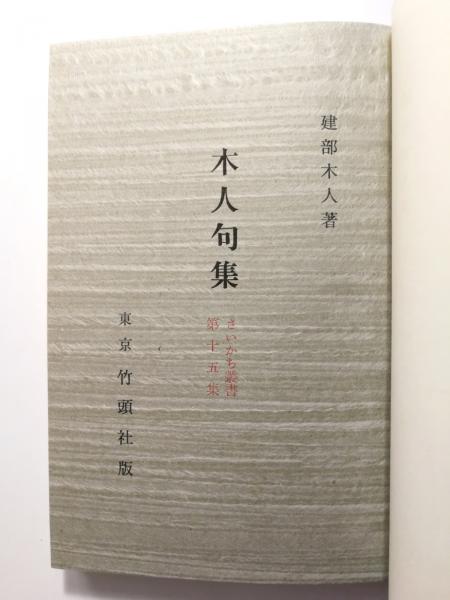 建部木人著
木人句集
さいかち叢書
第十五集
東京 竹頭社版